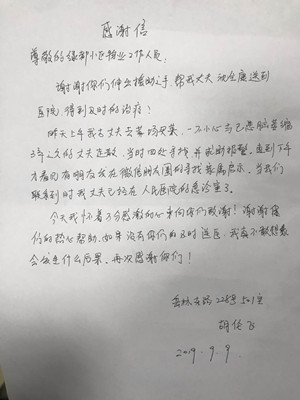 感谢信
尊敬的绿都小区物业工作人员:
谢谢你们伸出援助之手,帮我丈夫 安全送到
医院,得到及时的治疗!
昨天上午我与丈夫去菜场买菜,一不小心与已患脑萎缩
3年之久的丈夫走散,当时四处寻找,并求助报警,直到下午
才看见有朋友在微信朋友圈的寻找家属启示,当我们
联系到时我丈夫已经在人民医院的急诊室了。
今天我怀着万分感激的心来向你们致谢!谢谢你
们的热心帮助,如果没有你们的及时送医,我真不敢想象
会发生什么后果,再次感谢你们!
路228号501室
2019.9.9